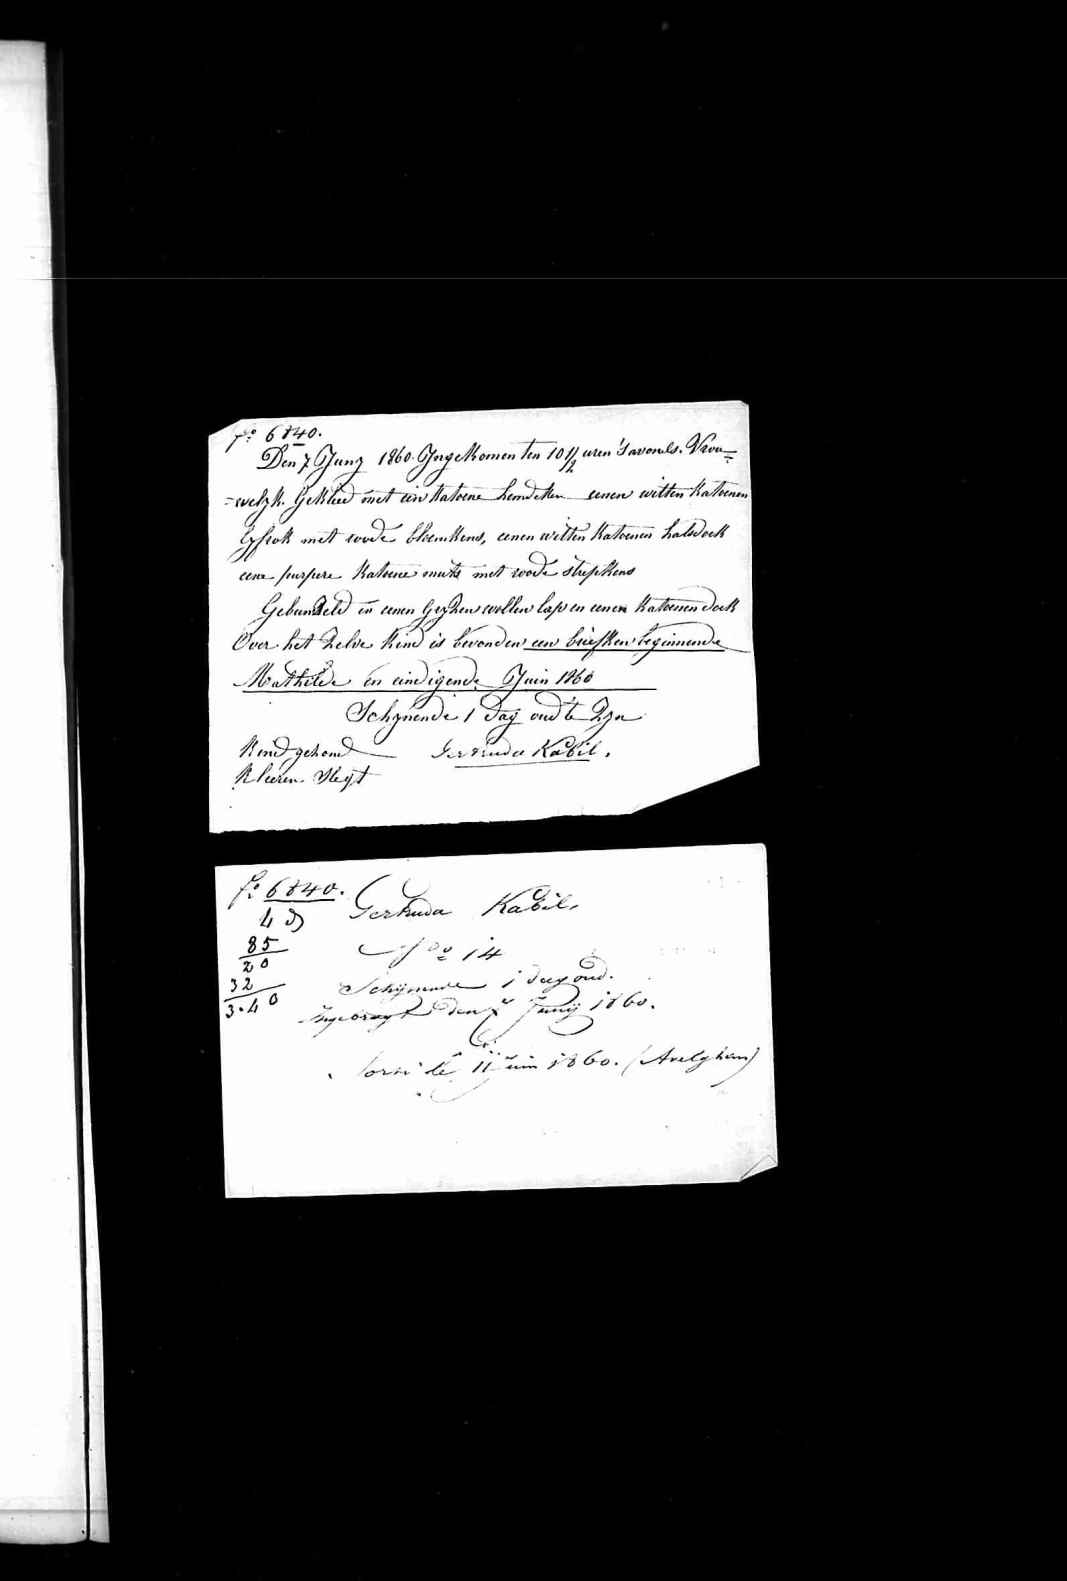 f° 6840.
Den 7 Juny 1860. Ingekomen ten 10 1/2 uren 'savonds. Vrou=
=welyk. Gekleed met een katoene hemdeken eenen witten katoenen
lyfrok met roode bloemkens, eenen witten katoenen halsdoek
eene purpere katoene muts met roode strepkens
Gebundeld in eenen gryzen wollen lap en eenen katoenen doek
Over het zelve kind is bevonden een briefken beginnende
Mathilde en eindigende Juin 1860
Schynende 1 dag oud te zyn
Kind gezond Gertruda Kabil.
Kleeren Slegt
f° 6840.
Gertruda Kabil.
4 d
85
N° 14
20
Schijnende 1 dag oud.
32
3.40
Ingebragt den 7 Junij 1860.
Sorti le 11 Juin 1860. (Avelghem)